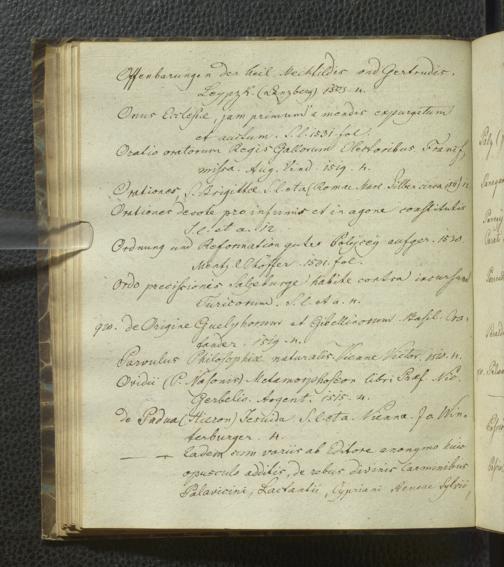 Offenbarungen der heil. Mechtildis und Gertrudis.
Leypzk. (Lanzberg) 1503. 4.
Onus Ecclesie, jam primum a mendis expurgatum
et auctum. S. l. 1531. fol.
Oratio oratorum Regis Gallorum Electoribus Francf.
missa. Aug. Vind. 1519. 4.
Orationes S. Brigitte S. l. et a. (Romae circa 12.
Orationes devote pro infirmis et in agone constitutis
S. l. et a. 12.
Ordnung und Reformation guter Policey aufger. 1530.
Mentz 1531. fol.
Ordo precissionis Salzburge habite contra incursum
Turcorum. S. l. et a. 4.
de Origine Guelphorum et Gibellinorum. Basil. Cra-
tander. 1519. 4.
Parvulus Philosophiae naturalis. Vienne Victor. 1510. 4.
Ovidii (P. Nasonis) Metamorphoseon libri Praef. Nic.
Gerbelio. Argent. 1515. 4.
de Padua (Hieron) Jesuida. S. l. et a. Vienna. Jo. Win-
terburger. 4.
— — Eadem cum variis ab Editore anonymo huic
opusculo additis, de rebus divinis Carminibus
Palavicini, Lactantii, Cypriani Aeneae Sylvii,